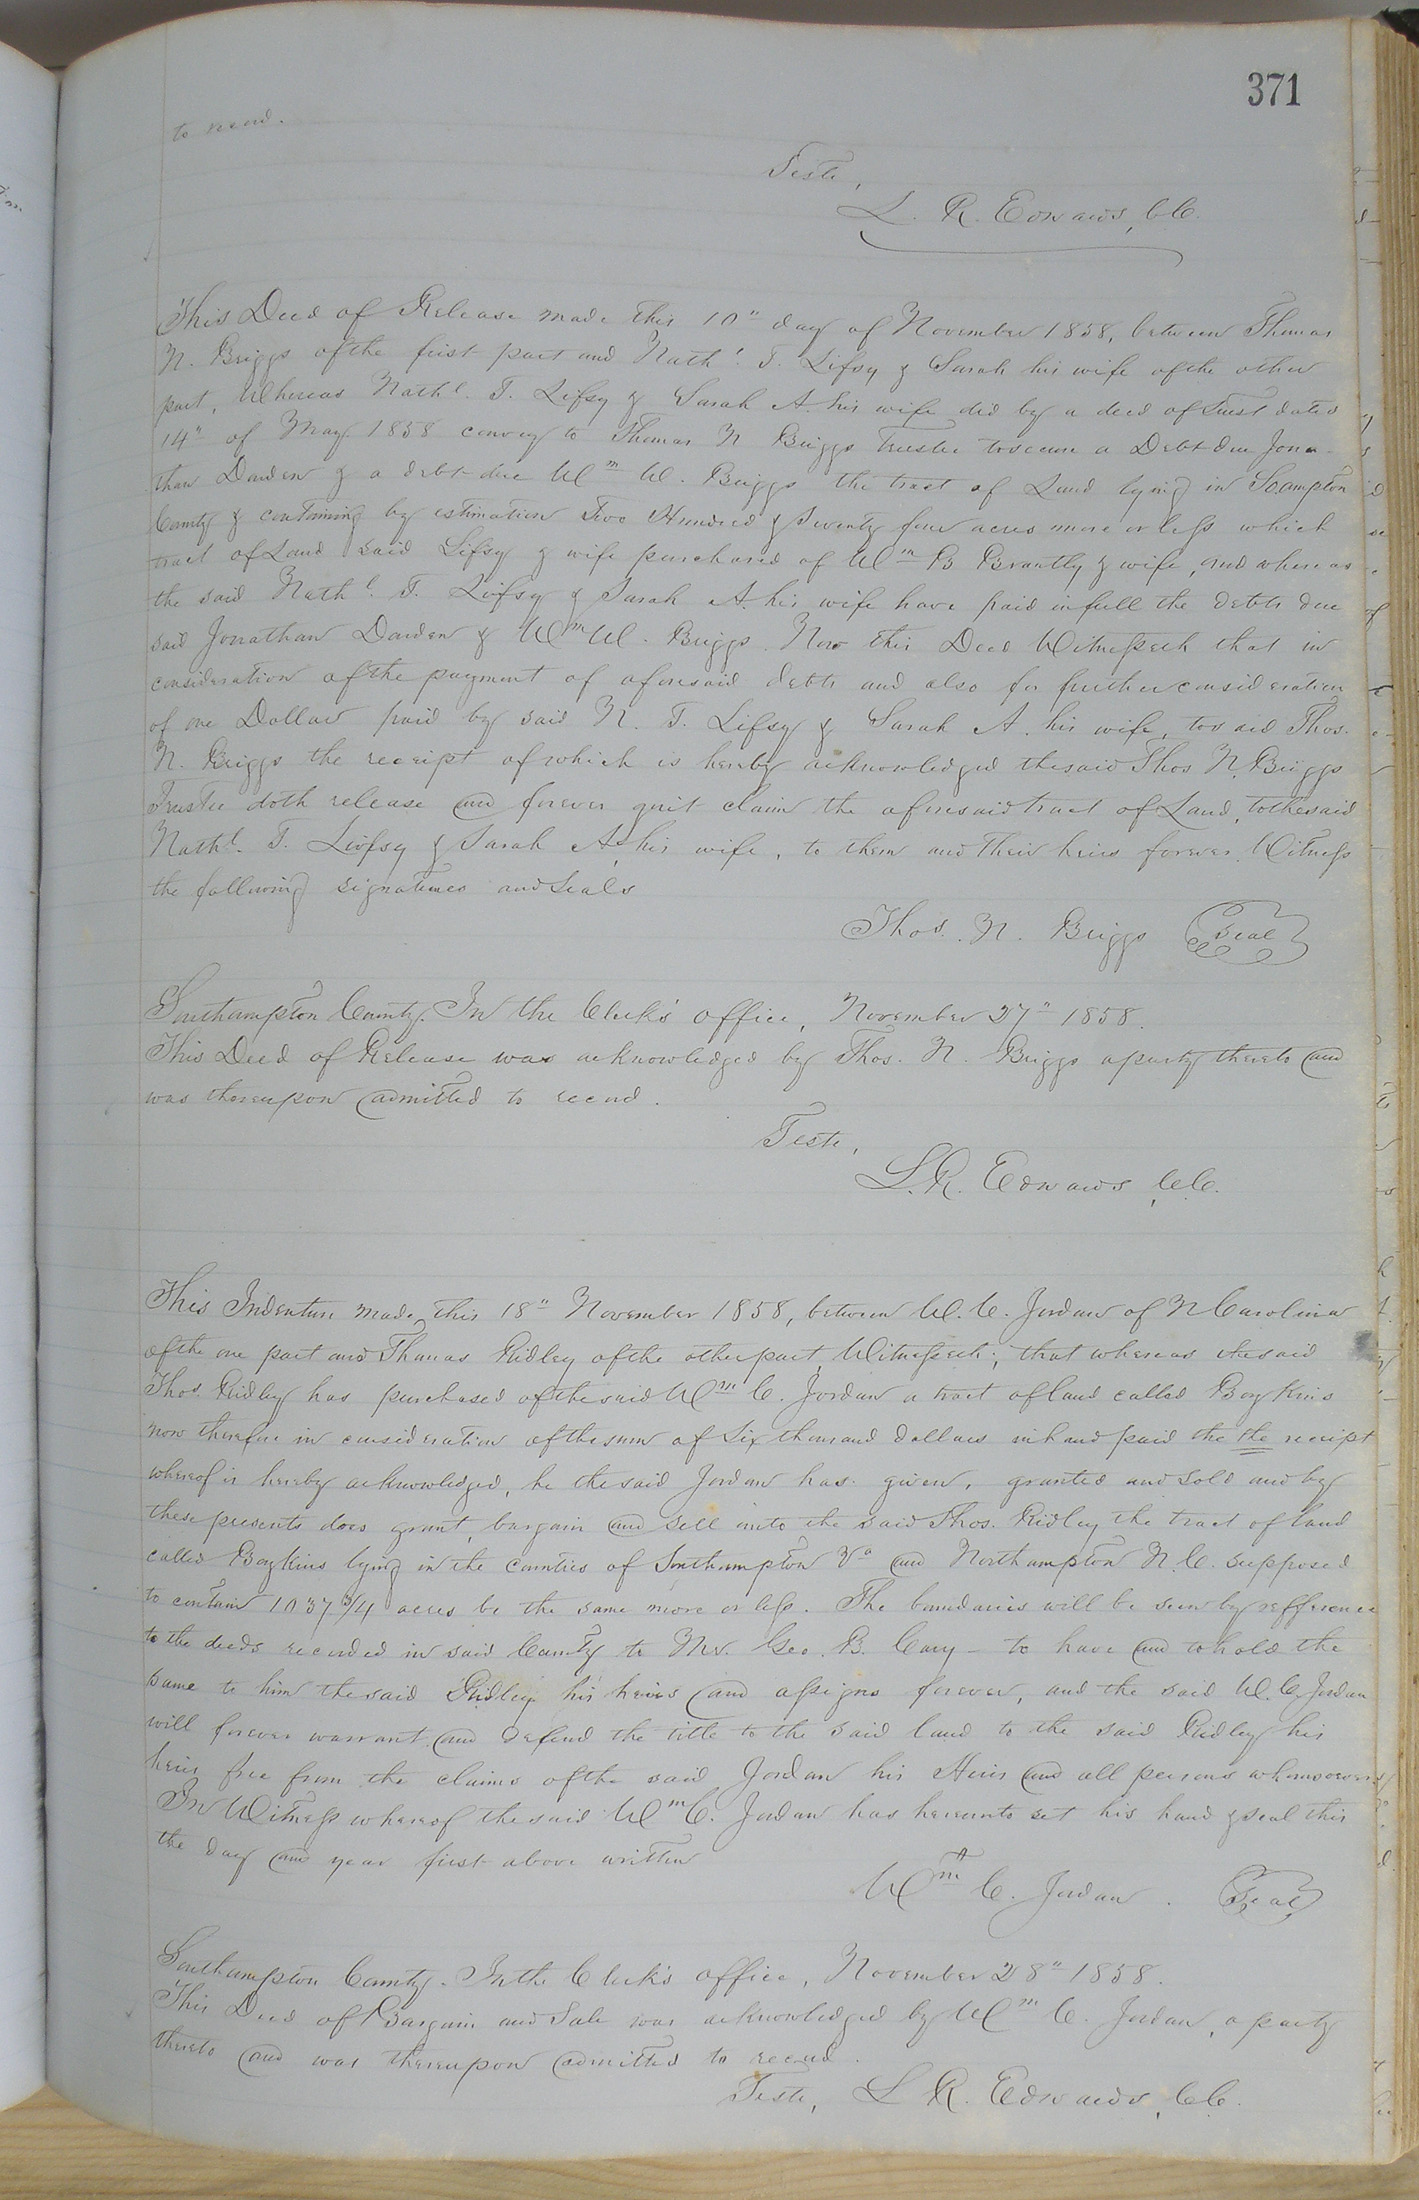 371
to record.
Teste,
L. R. Edwards, CC.
This Deed of Release made this 10" day of November 1858, between Thomas
N. Briggs of the first part and Nathl. T. Lifsy & Sarah his wife of the other
part, Whereas Nathl. T. Lifsy & Sarah A. his wife did by a deed of Trust dated
14" of May 1858 convey to Thomas N Briggs Trustee to secure a Debt due Jona-
than Darden & a debt due Wm W. Briggs the tract of Land lying in So.ampton
County & containing by estimation Two Hundred & Seventy four acres more or less which
tract of Land said Lifsy & wife purchased of Wm B Brantly & wife, and whereas
the said Nathl. T. Lifsy & Sarah A. his wife have paid in full the debts due
said Jonathan Darden & Wm W. Briggs. Now this Deed Witnesseth that in
consideration of the payment of aforesaid debts and also for further consideration
of one Dollar paid by said N. T. Lifsy & Sarah A. his wife, to said Thos.
N. Briggs the receipt of which is hereby acknowledged the said Thos N. Briggs
Trustee doth release and forever quit claim the aforesaid tract of Land, to the said
Nathl. T. Lifsy & Sarah A. his wife, to them and their heirs forever. Witness
the following signatures and seals
Thos. N. Briggs Seal
Southampton County. In the Clerk's office, November 27" 1858.
This Deed of Release was acknowledged by Thos. N. Briggs a party thereto and
was thereupon admitted to record.
Teste,
L. R. Edwards, CC.
This Indenture made, this 18" November 1858, between W. C. Jordan of N Carolina
of the one part and Thomas Ridley of the other part, Witnesseth; that whereas the said
Thos. Ridley has purchased of the said Wm C. Jordan a tract of land called Boykins
now therefore in consideration of the sum of Six thousand dollars in hand paid the the receipt
whereof is hereby acknowledged, he the said Jordan has given, granted and sold and by
these presents does grant, bargain and sell unto the said Thos. Ridley the tract of land
called Boykins lying in the counties of Southampton Va and Northampton N. C. supposed
to contain 1037 3/4 acres be the same more or less. The boundaries will be seen by refference
to the deeds recorded in said County to Mr. Geo. B. Cary - to have and to hold the
same to him the said Ridley his heires and assigns forever, and the said W. C. Jordan
will forever warrant and defend the title to the said land to the said Ridley his
heirs free from the claims of the said Jordan his Heirs and all persons whomsoever
In Witness whereof the said Wm C. Jordan has hereunto set his hand & seal this
the day and year first above written
Wm C. Jordan. Seal
Southampton County. In the Clerk's office, November 28" 1858.
This Deed of Bargain and Sale was acknowledged by Wm C. Jordan, a party
thereto and was thereupon admitted to record.
Teste, L R. Edwards, CC.